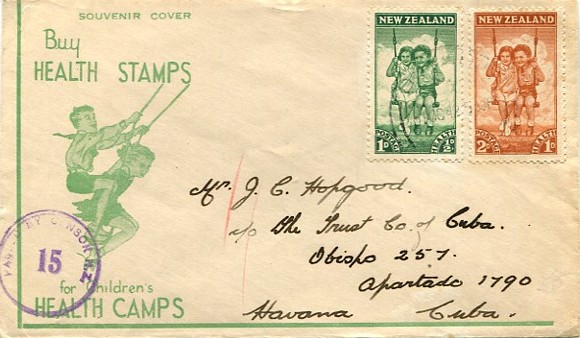 SOUVENIR COVER
Buy
HEALTH STAMPS
NEW ZEALAND
POSTAGE HEALTH
1D ½D
NEW ZEALAND
POSTAGE HEALTH
2D 1D
Mr. J. C. Hopgood.
c/o The Trust Co. of Cuba.
Obispo 257.
Apartado 1790
Havana Cuba.
PASSED BY CENSOR N.Z.
15
for Children's
HEALTH CAMPS